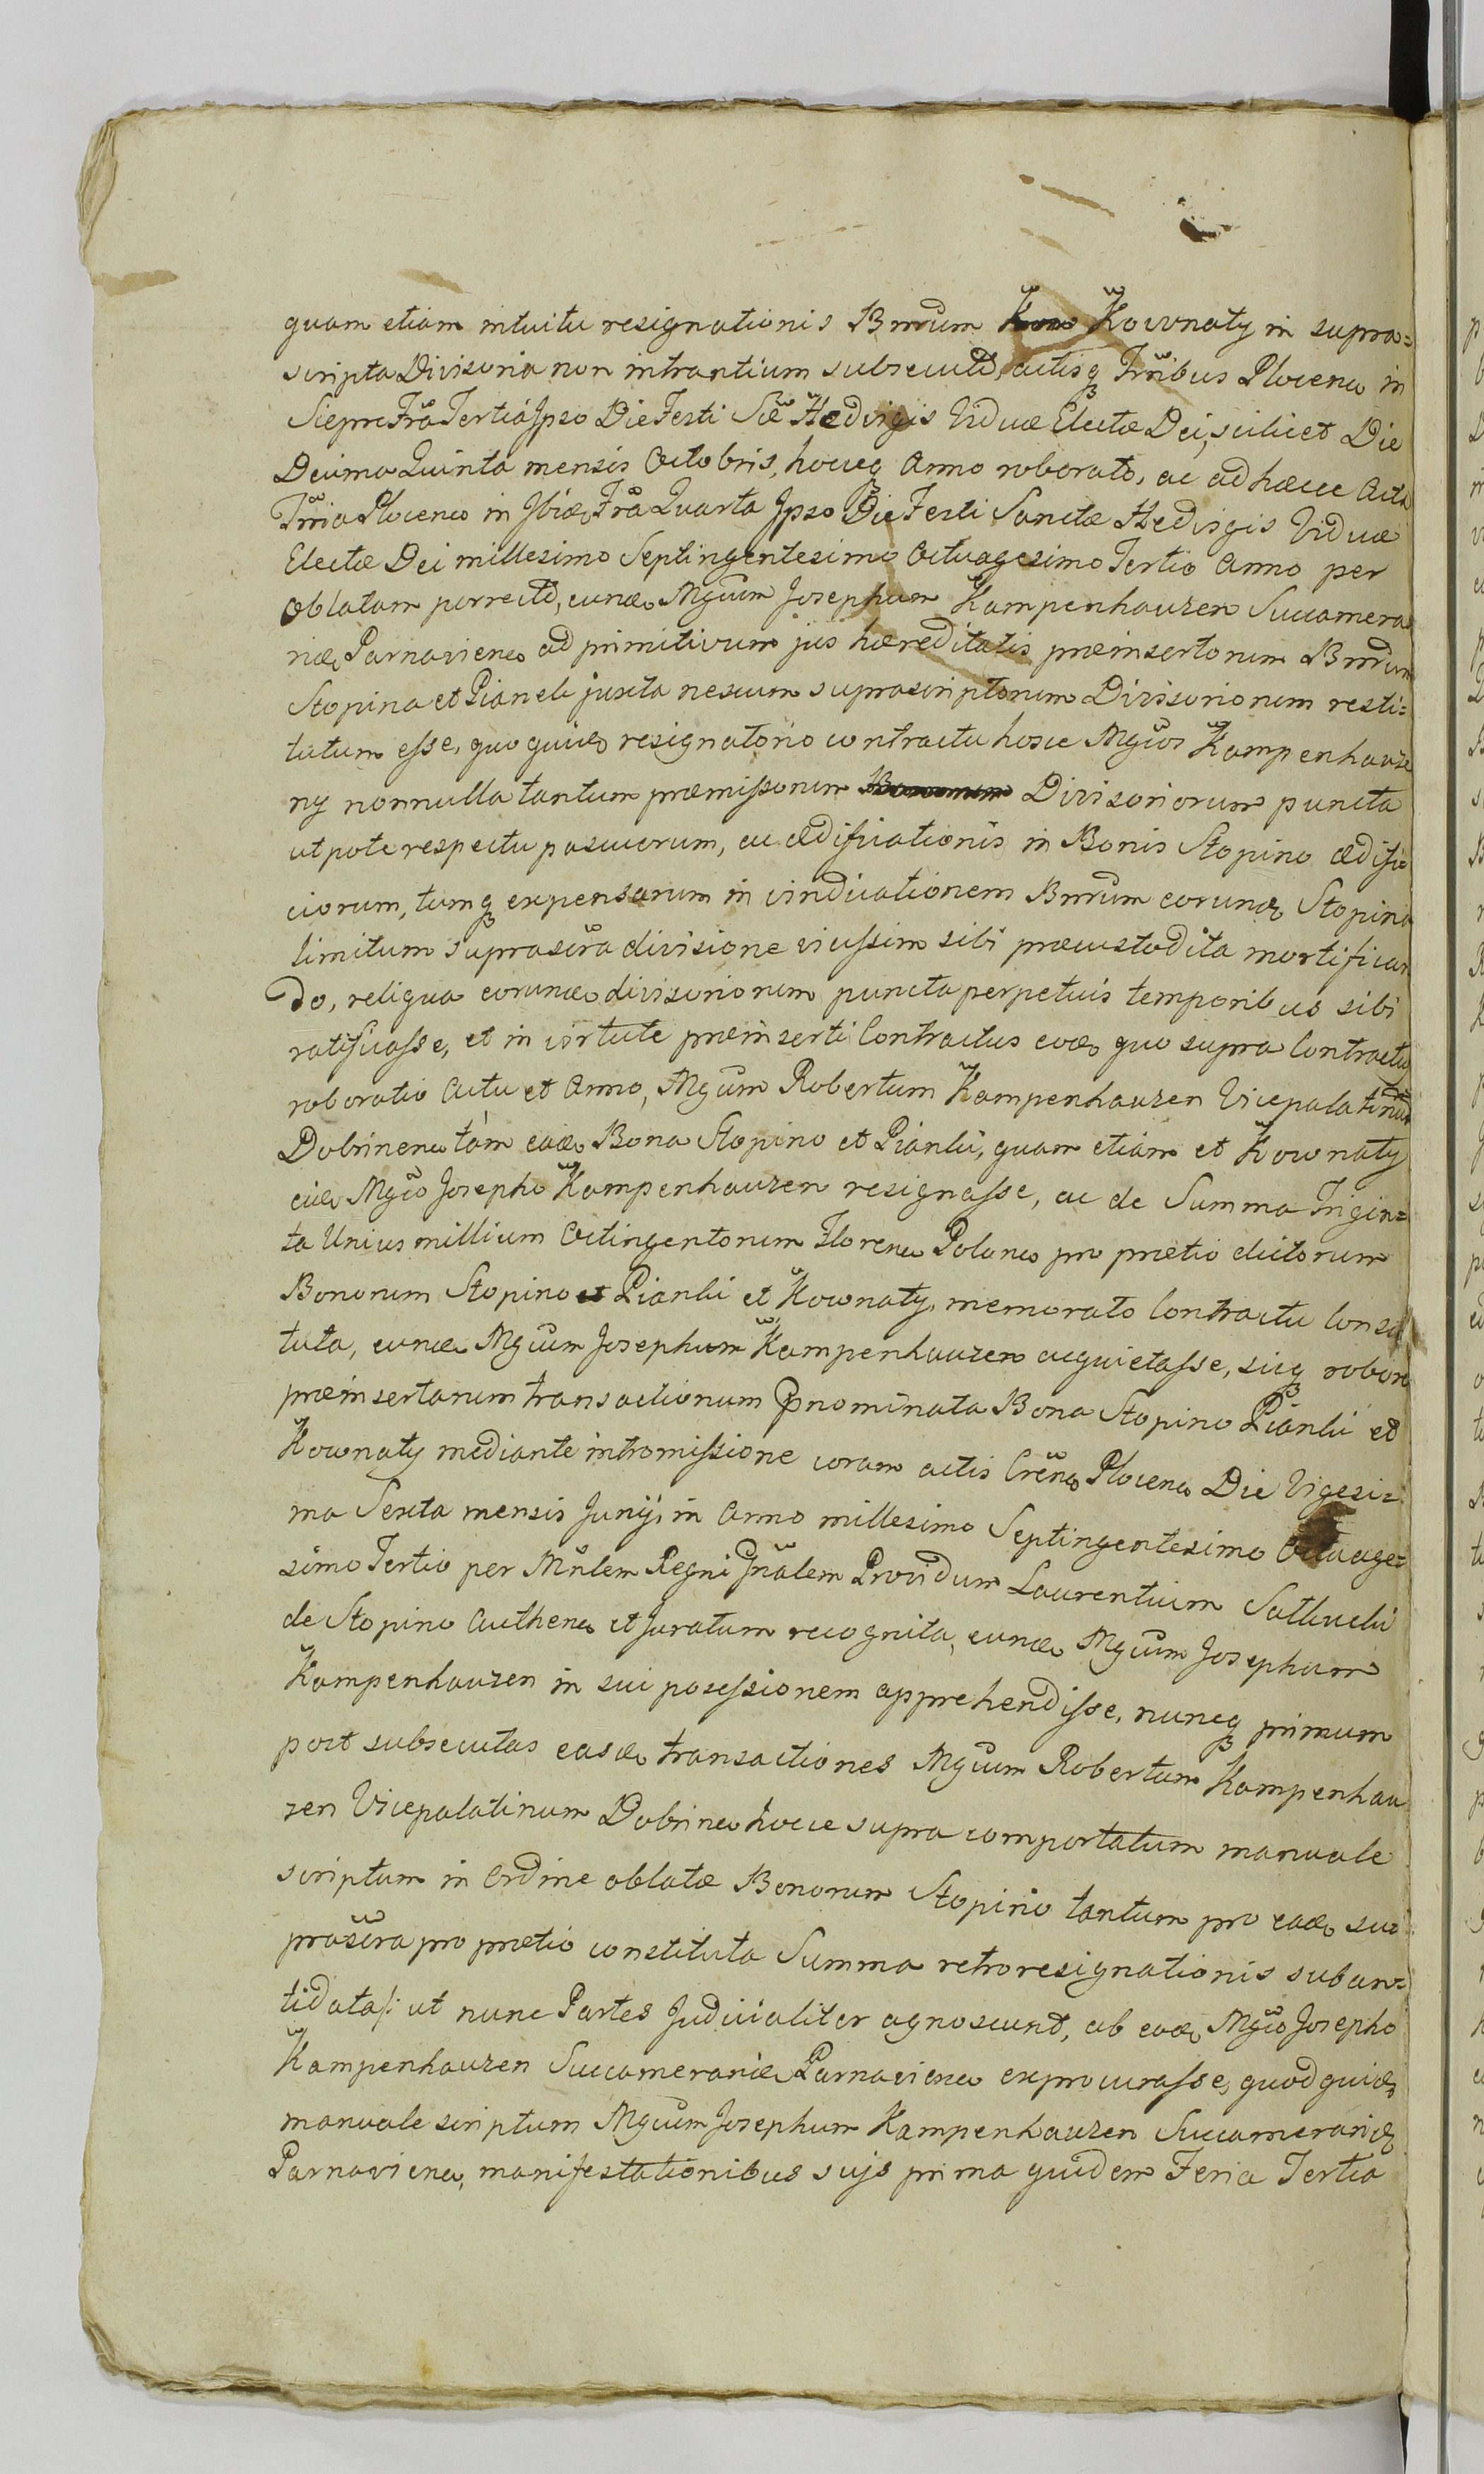 quam etiam intuitu resignationis Bnrum Kownaty in supra=
scripta Divisoria non intrantium subsecuto, actisq Trribus Plocen in
Sieprc Fra Tertia Ipso Die Festi Sæ Hedvigis Viduæ Electæ Dei, scilicet Die
Decima Quinta mensis Octobris, hocceq Anno roborato, ac ad hæcce Acta
Trria Plocen in Fra Quarta Ipso Die Festi Sanctæ Hedvigis Viduæ
Electæ Dei millesimo Septingentesimo Octuagesimo Tertio Anno per
Oblatam porrecto, eund Mgcum Josephum Kampenhauzen Succamera
rid Parnavien ad primitivum jus hæreditatis præinsertorum Bnrum
Stopino et Pianki juxta nexum suprascriptorum Divisoriorum resti=
tutum esse, quo quid resignatorio contractu hocce Mgcos Kampenhauze
ny nonnulla tantum præmissorum Divisoriorum puncta
utpote respectu pascuorum, ac ædificationis in Bonis Stopino ædifi
ciorum, tumq expensarum in vindicationem Bnrum eorund Stopino
limitum suprascra divisione vicissim sibi præcustodita mortifican
do, reliqua eorund divisoriorum puncta perpetuis temporibus sibi
ratificasse, et in virtute præinserti Contractus eod quo supra Contractu
roborato Actu et Anno, Mgcum Robertum Kampenhauzen Vicepalatinum
Dobrinen tàm ead Bona Stopino et Pianki, quam etiam et Kownaty
eid Mgco Josepho Kampenhauzen resignasse, ac de Summa Trigin=
ta Unius millium Octingentorum Floren Polon pro prætio dictorum
Bonorum Stopino et Pianki et Kownaty, memorato Contractu Consti
tuta, eund Mgcum Josephum Kampenhauzen acquietasse, sicq robore
præinsertarum transactionum Pnominata Bona Stopino Pianki et
Kownaty mediante intromissione coram actis Cren Plocen Die Vigesi=
ma Sexta mensis Junij, in Anno millesimo Septingentesimo Octuage=
simo Tertio per Mnlem Regni Gnalem Providum Laurentium
de Stopino Authen et Juratum recognita, eund Mgcum Josephum
Kampenhauzen in sui posessionem apprehendisse, nuncq primum
post subsecutas easd transactiones Mgcum Robertum Kampenhau
zen Vicepalatinum Dobrinen hocce supra comportatum manuale
scriptum in Ordine oblatæ Bonorum Stopino tantum pro ead su=
prascra pro prætio constituta Summa retroresignationis suban=
tidata/: ut nunc Partes Judicialiter agnoscunt, ab eod Mgco Josepho
Kampenhauzen Succamerarid Parnavien exprocurasse, quod quid
manuale scriptum Mgcum Josephum Kampenhauzen Succamerarid
Parnavien, manifestationibus sujs prima quidem Feria Tertia